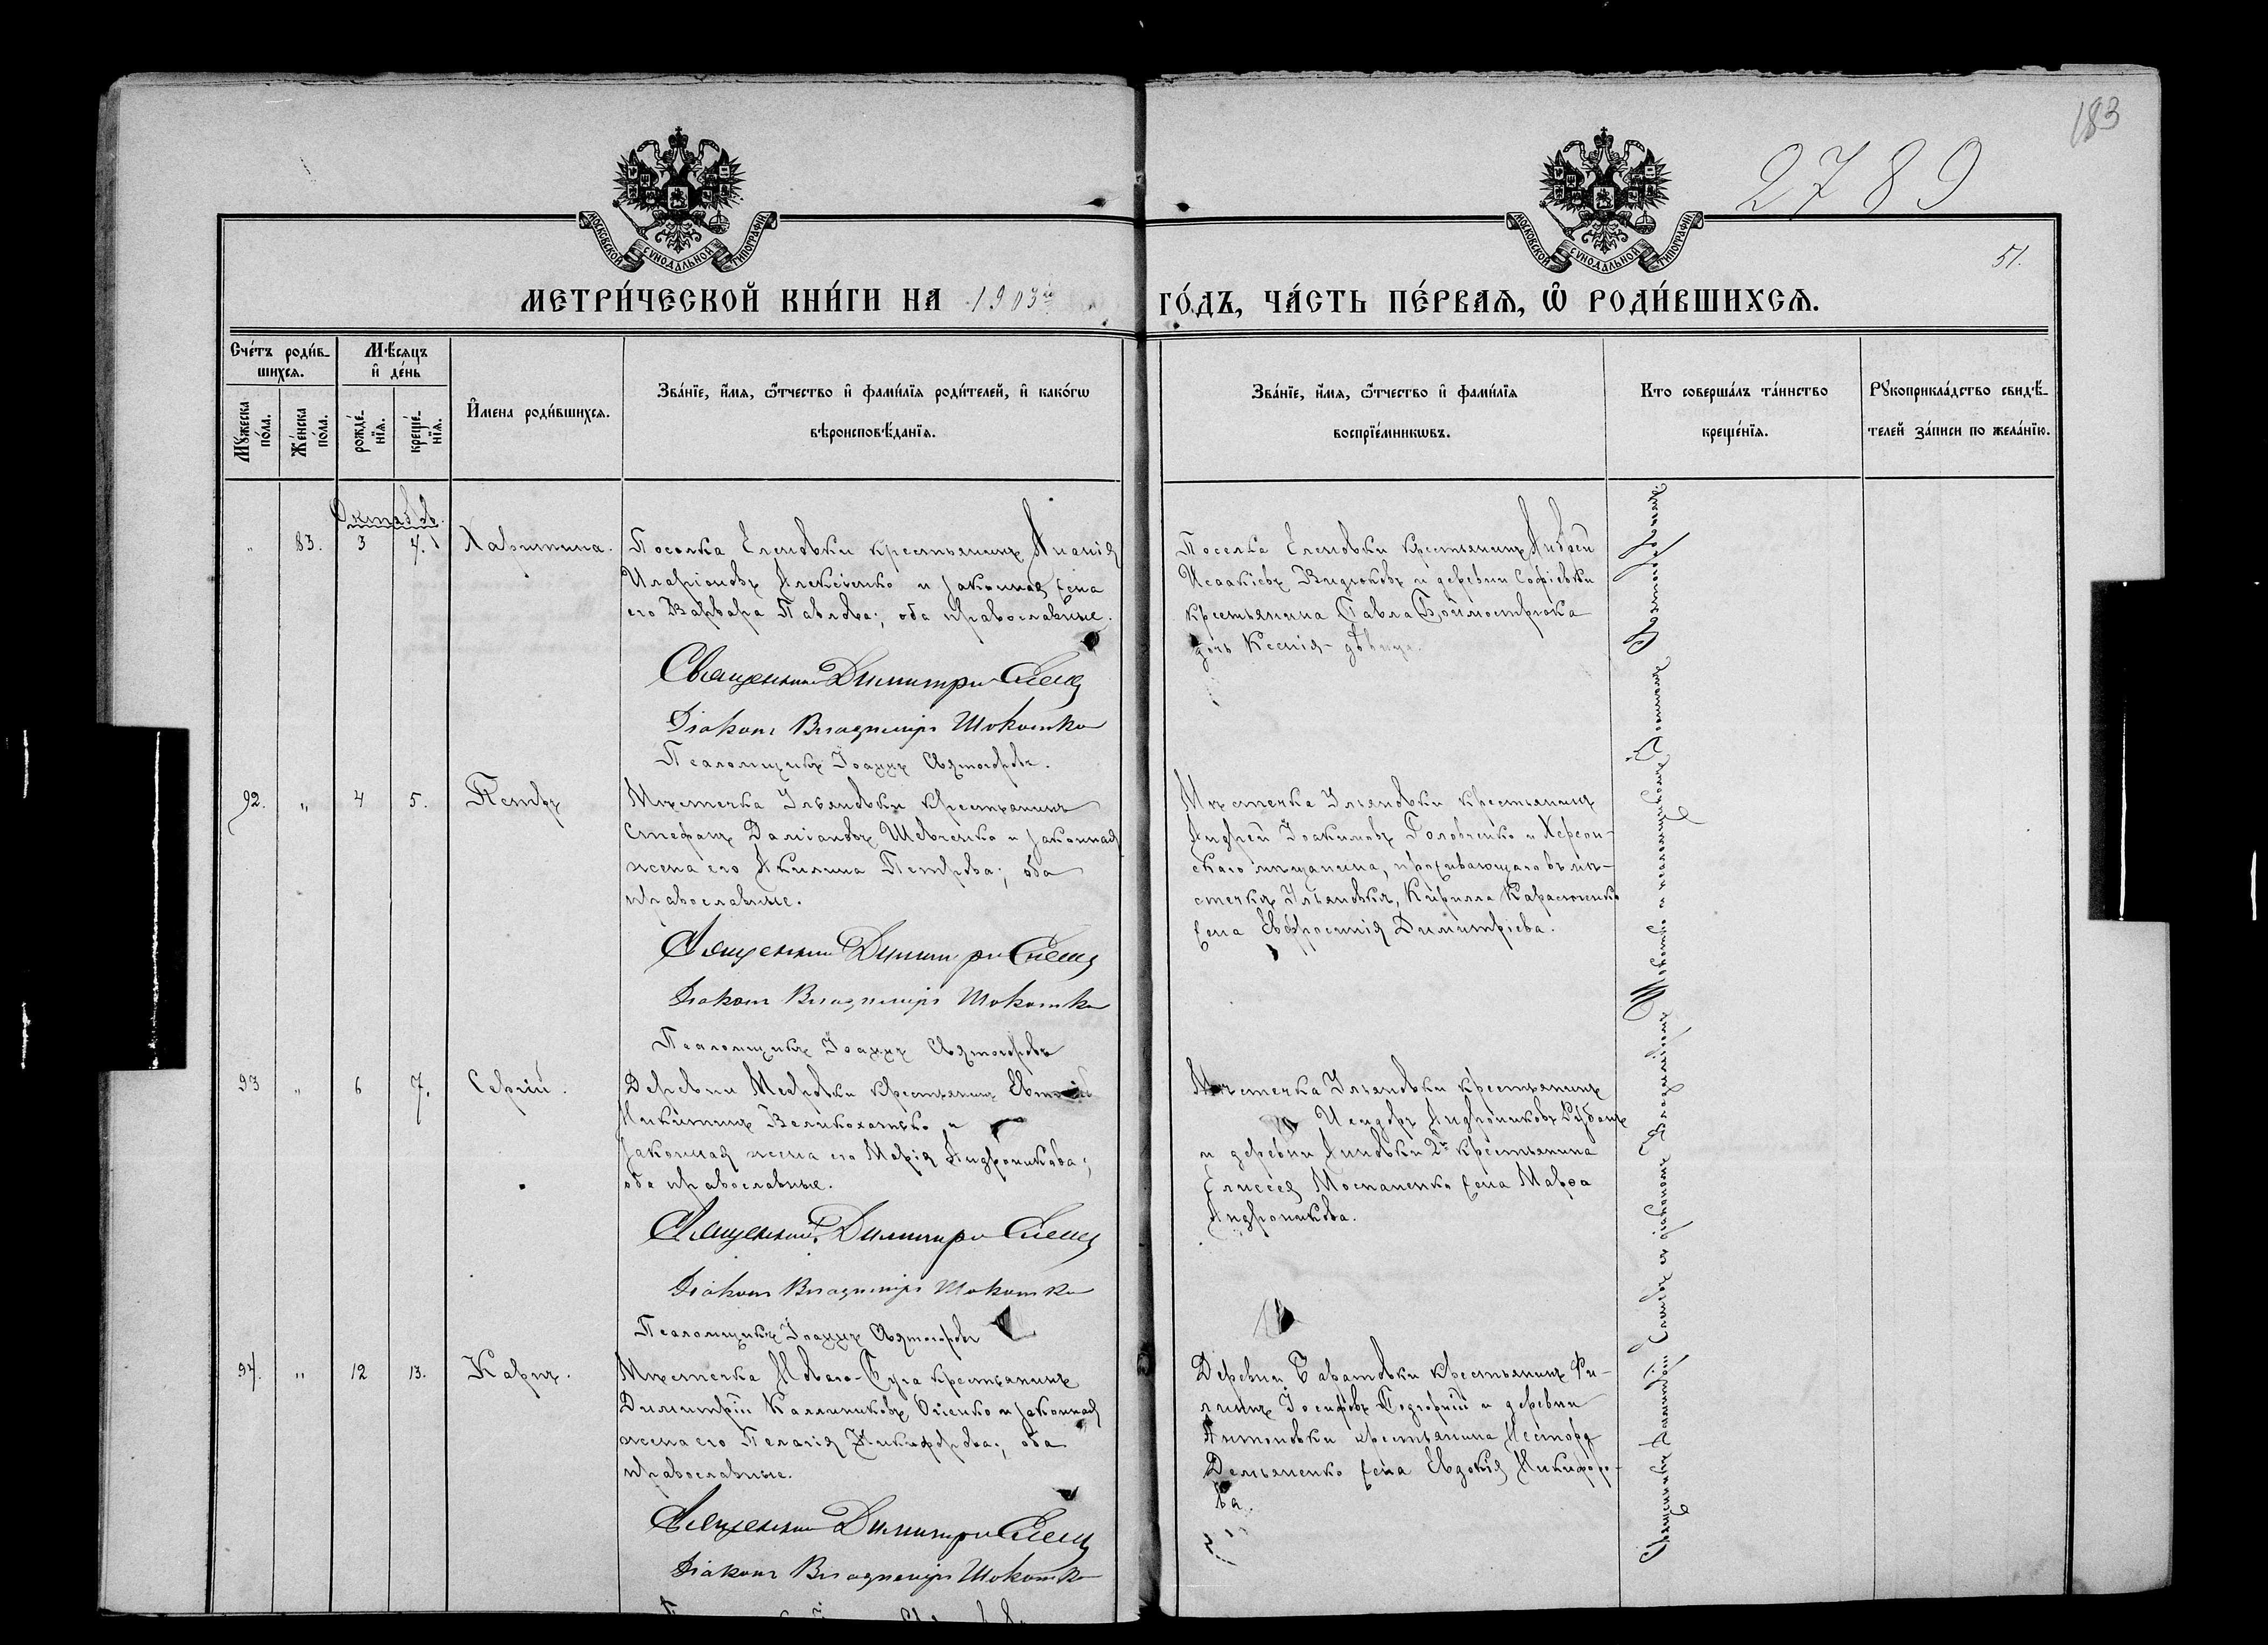 183
2789
51.
МОСКОВСКОЙ СѴНОДАЛЬНОЙ ТИПОГРАФІИ
МОСКОВСКОЙ СѴНОДАЛЬНОЙ ТИПОГРАФІИ
МЕТРИ́ЧЕСКОЙ КНИ́ГИ НА 1903й
ГО́ДЪ, ЧА́СТЬ ПЕ́РВАЯ, Ѡ҆ РОДИ́ВШИХСЯ.
Сче́тъ роди́в-
шихся.
Мꙋжеска по́ла.
Же́нска по́ла.
Мѣ́сяцъ
и҆ де́нь
рожде́-
нїя.
креще́-
нїя.
И҆мена роди́вшихся.
Зва́нїе, и҆́мя, ѻ҆́тчество и҆ фами́лїя роди́телей, и҆ како́гѡ
вѣроисповѣ́данїя.
Зва́нїе, и҆́мя, ѻ҆́тчество и҆ фами́лїя
воспрїе́мникѡвъ.
Кто соверша́лъ та́инство
креще́нїя.
Рꙋкоприкла́дство свидѣ́-
телей за́писи по жела́нїю.
Октябрь.
" 83. 3 4. Харитина.
Поселка Еленовки крестьянинъ Ананія
Иларіоновъ Алексѣенко и законная жена
его Варвара Павлова; оба православные.
Священникъ Димитрій
Діаконъ Владиміръ Шокотко
Псаломщикъ Іоаннъ Святогоровъ.
Поселка Еленовки крестьянинъ Андрей
Исаакіевъ Видюковъ и деревни Софіевки
крестьянина Павла
дочь Ксенія - дѣвица.
92. " 4 5. Петръ
Мѣстечка Ульяновки крестьянинъ
Стефанъ Даміановъ Шевченко и законная
жена его Акилина Петрова; оба
православные.
Священникъ Димитрій
Діаконъ Владиміръ Шокотко
Псаломщикъ Іоаннъ Святогоровъ
Мѣстечка Ульяновки крестьянинъ
Андрей Іоакимовъ Головченко и Херсон-
скаго мѣщанина, проживающаго въ мѣ-
стечкѣ Ульяновкѣ, Кирилла
жена Евфросинія Димитріева.
93 " 6 7. Сергій.
Деревни крестьянинъ
Никитинъ и
законная жена его Марія Андроникова;
оба православные.
Священникъ Димитрій
Діаконъ Владиміръ Шокотко
Псаломщикъ Іоаннъ Святогоровъ
Мѣстечка Ульяновки крестьянинъ
Исидоръ Андрониковъ Рубанъ
и деревни Анновки 2й крестьянина
Елисея Мостипенко жена Марѳа
Андроникова.
94. " 12 13. Карпъ.
Мѣстечка Новаго-Буга крестьянинъ
Димитрій Каллиниковъ и законная
жена его Пелагія Никифорова; оба
православные.
Священникъ Димитрій
Діаконъ Владиміръ Шокотко
Деревни Баратовки крестьянинъ Фи-
липпъ Іосифовъ Подгорный и деревни
Антоновки крестьянина Нестора
Демьяненко жена Евдокія Никифоро-
ва.
Священникъ Димитрій съ діакономъ Владиміромъ Шокотко и псаломщикомъ Іоанномъ Святогоровымъ.